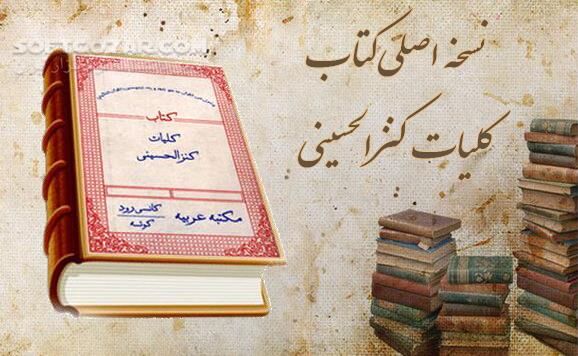 SOFTGOZAR.COM
نسخه اصلی کتاب
کلیات کنزالحسینی
کتاب
کلیات
کنزالحسینی
مکتبه عربیه
کانسی رود
کوئٹه